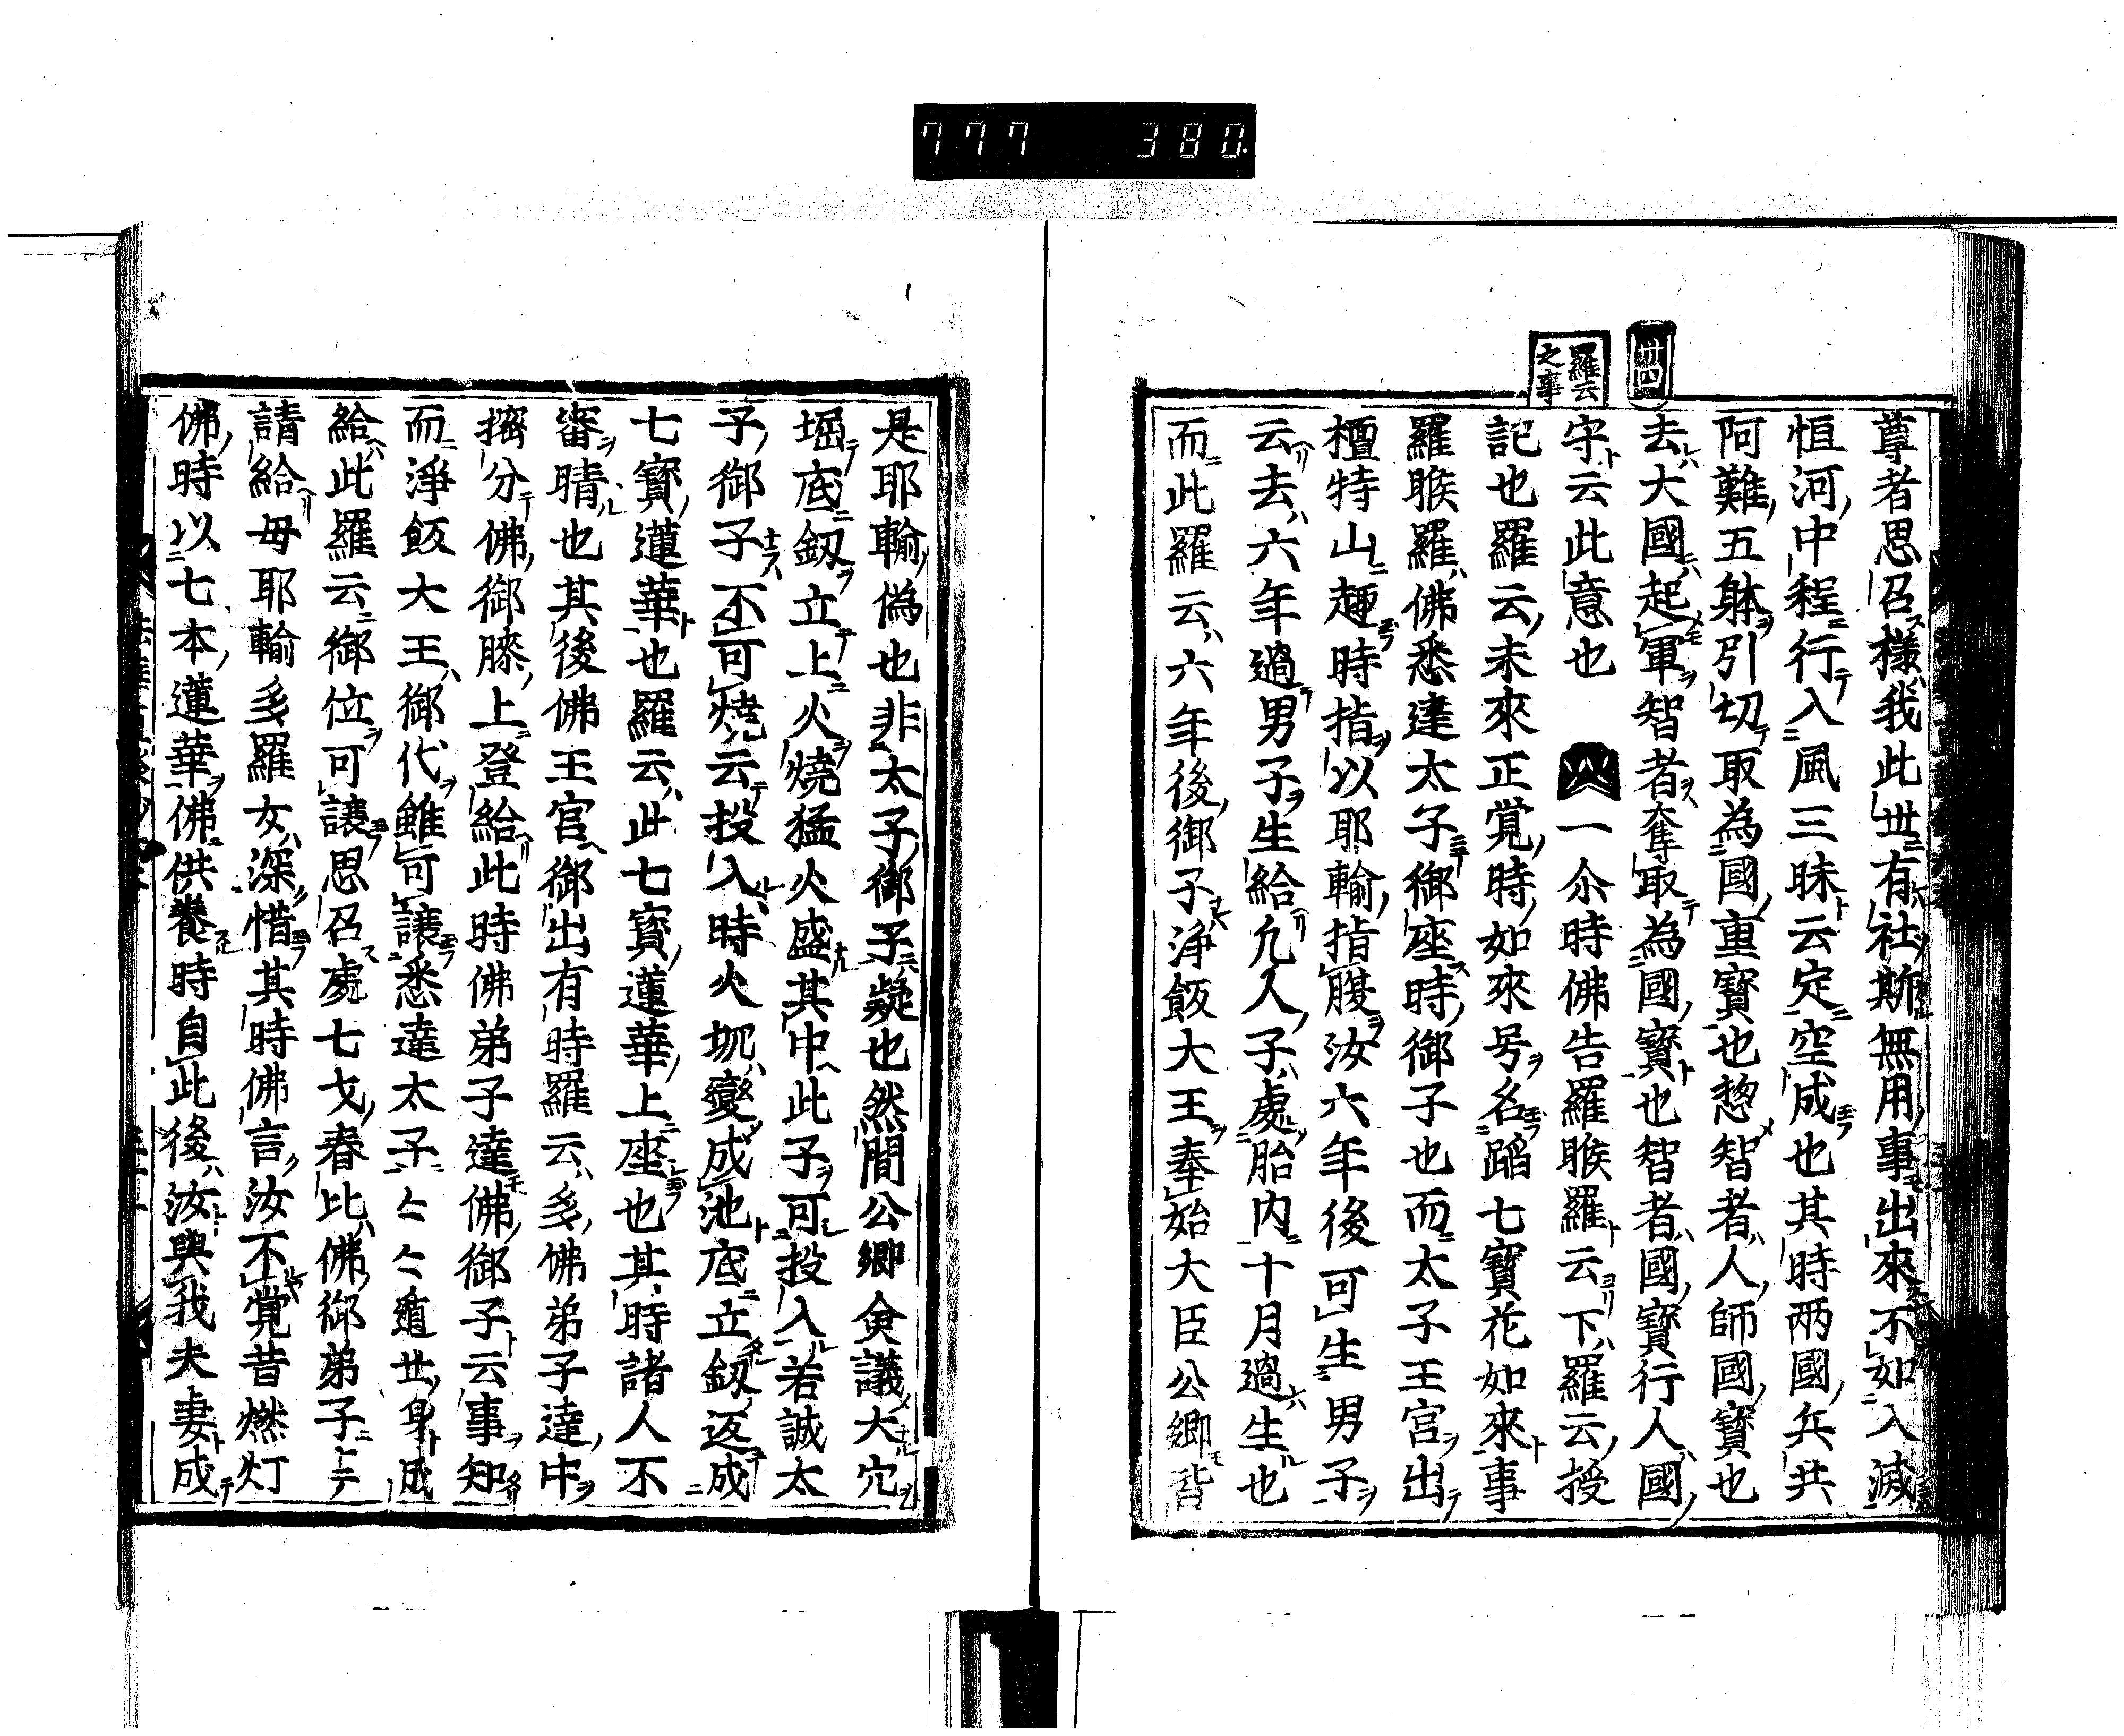 777 380
卅四
羅云
之事
尊者思召様我此世有社斯無用事出來不如入滅
恒河中程行入風三昧云定空成也其時两國兵共
阿難五躰引切取為國重寳也惣智者人師國寳也
去大國起軍智者奪取為國寳也智者國寳行人國
守云此意也 一尒時佛告羅睺羅云下羅云授
記也羅云未來正覚時如來号名蹈七寳花如來事
羅睺羅佛悉達太子御座時御子也而太子王宮出
檀特山趣時指以耶輸指腹汝六年後可生男子
云去六年過男子生給凢人子處胎内十月過生也
而此羅云六年後御子浄飯大王奉始大臣公卿皆
是耶輸偽也非太子御子疑也然間公卿僉議大穴
堀底釼立上火燒猛火盛其中此子可投入若誠太
子御子不可燒云投入時火坑變成池底立釼返成
七寳蓮華也羅云此七寳蓮華上座也其時諸人不
審晴也其後佛王宮御出有時羅云多佛弟子達中
擠分佛御膝上登給此時佛弟子達佛御子云事知
而浄飯大王御代雖可讓悉達太子遁世身成
給此羅云御位可讓思召處七才春比佛御弟子
請給母耶輸多羅女深惜其時佛言汝不覚昔燃灯
佛時以七本蓮華佛供養時自此後汝與我夫妻成